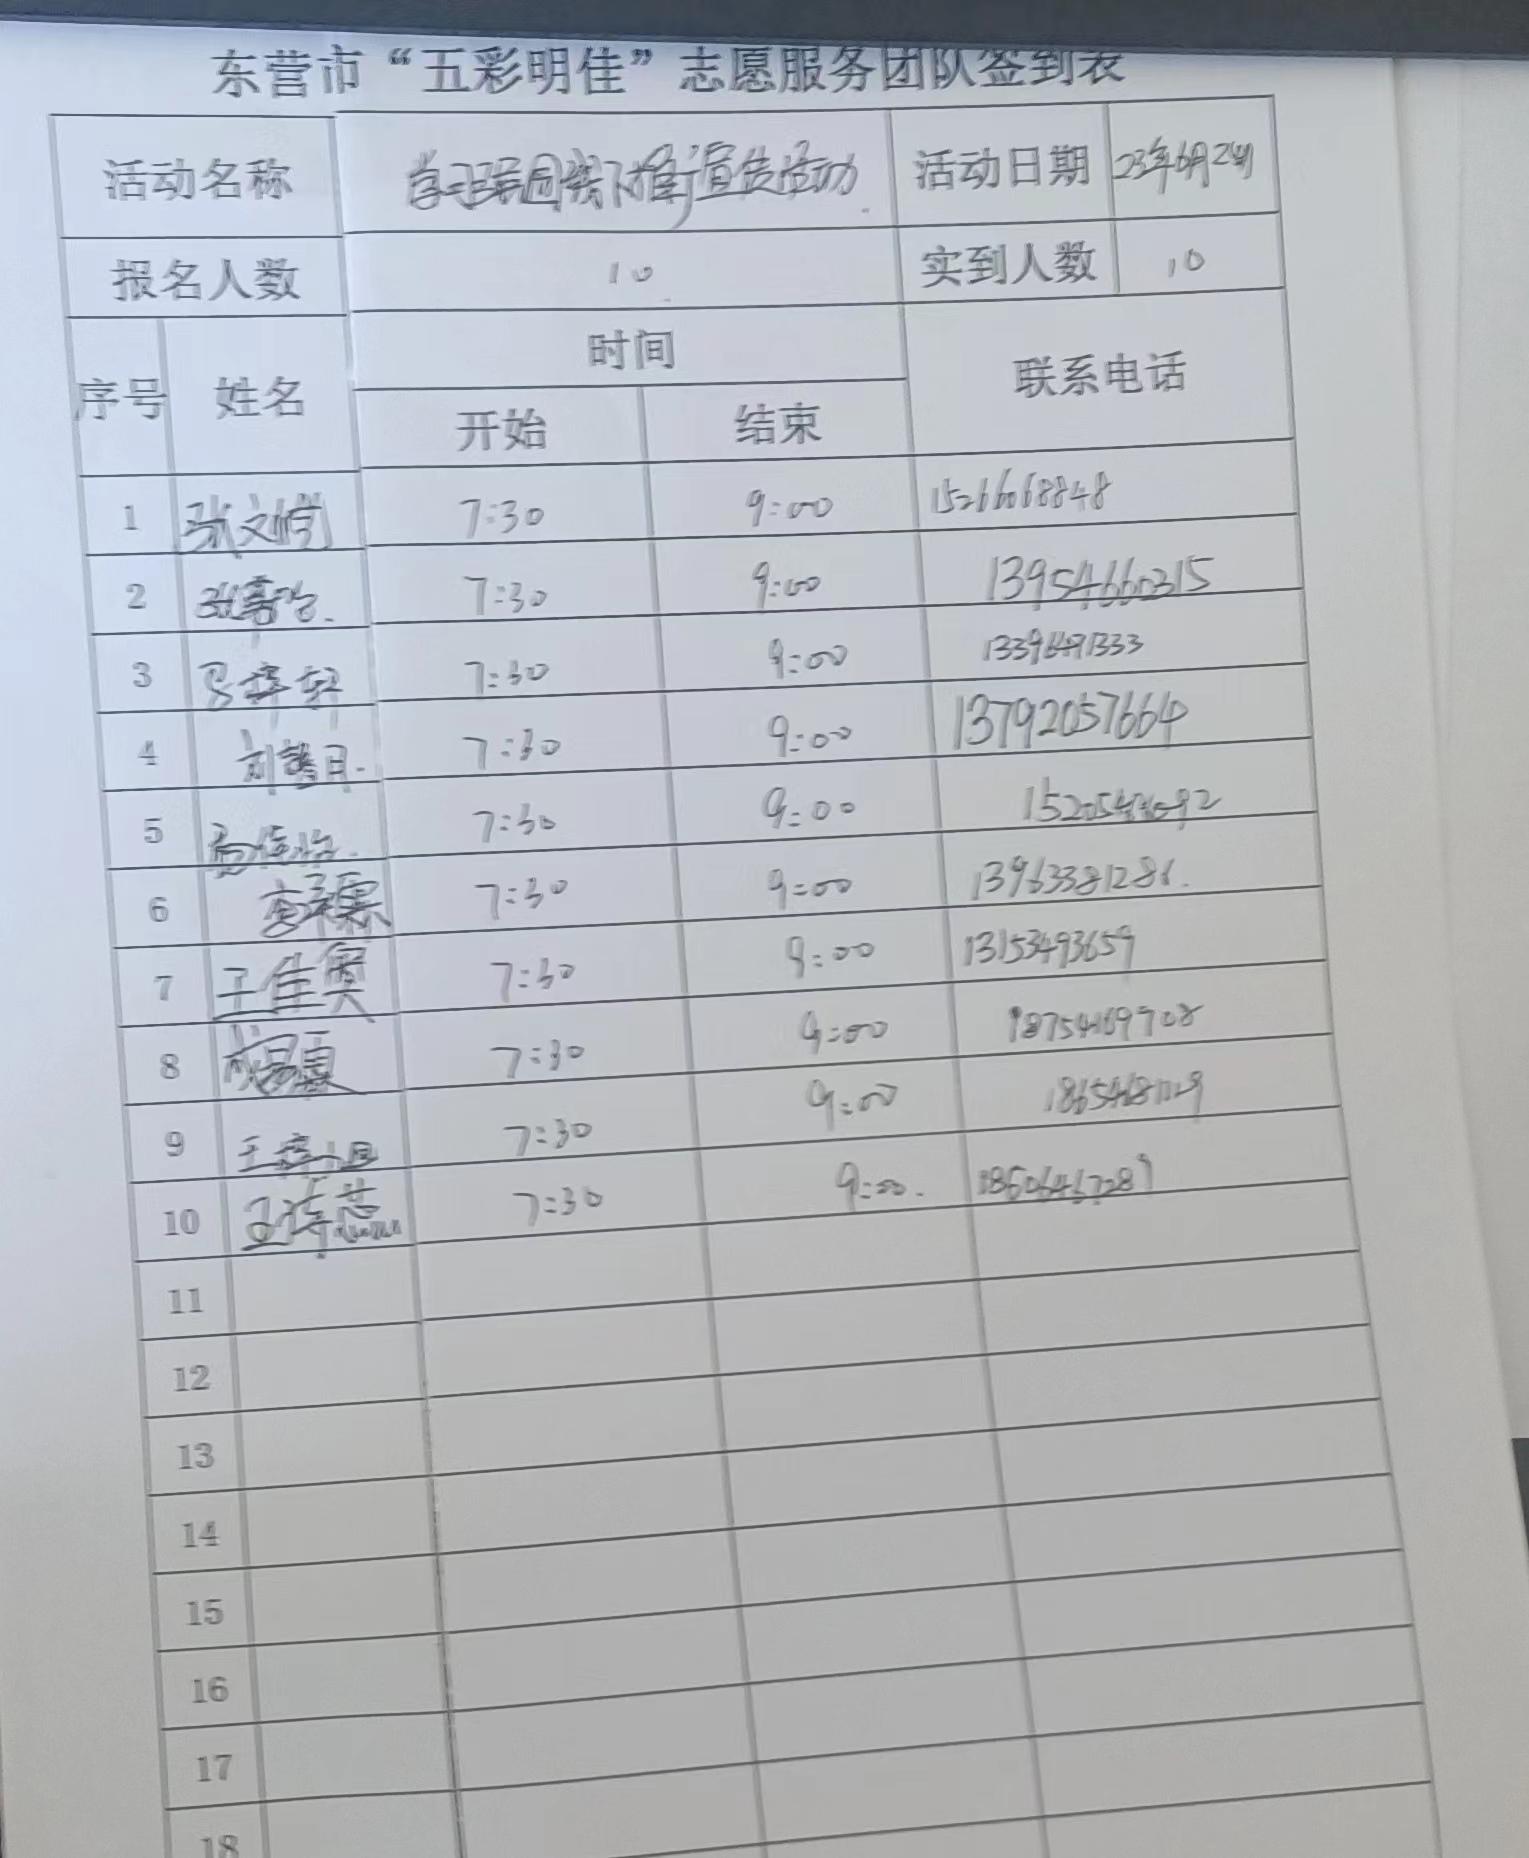 东营市“五彩明佳”志愿服务团队签到表
活动名称 宣传活动 活动日期 23年6月24日
报名人数 10 实到人数 10
序号 姓名 时间 联系电话
开始 结束
1 张文 7:30 9:00 15266068848
2 张 7:30 9:00 13954660315
3 马梓轩 7:30 9:00
4 刘 7:30 9:00 13792057664
5 7:30 9:00
6 7:30 9:00 13963381286.
7 王佳 7:30 9:00 13153493659
8 7:30 9:00 18754169708
9 王梓 7:30 9:00
10 王梓蕊 7:30 9:00.
11
12
13
14
15
16
17
18